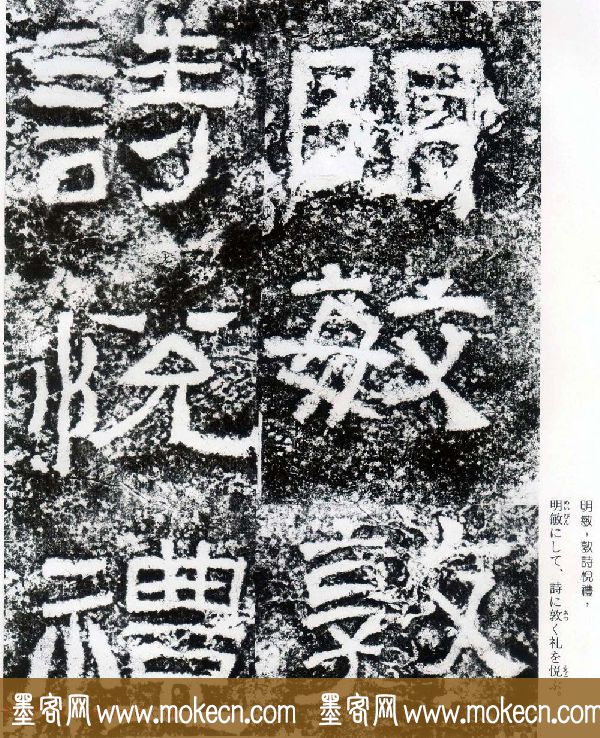 明敏敦
詩悦禮
明敏,敦詩悅禮,
明敏にして、詩に敦く礼を悦ぶ。
墨客网 www.mokecn.com 墨客网 www.mokecn.com